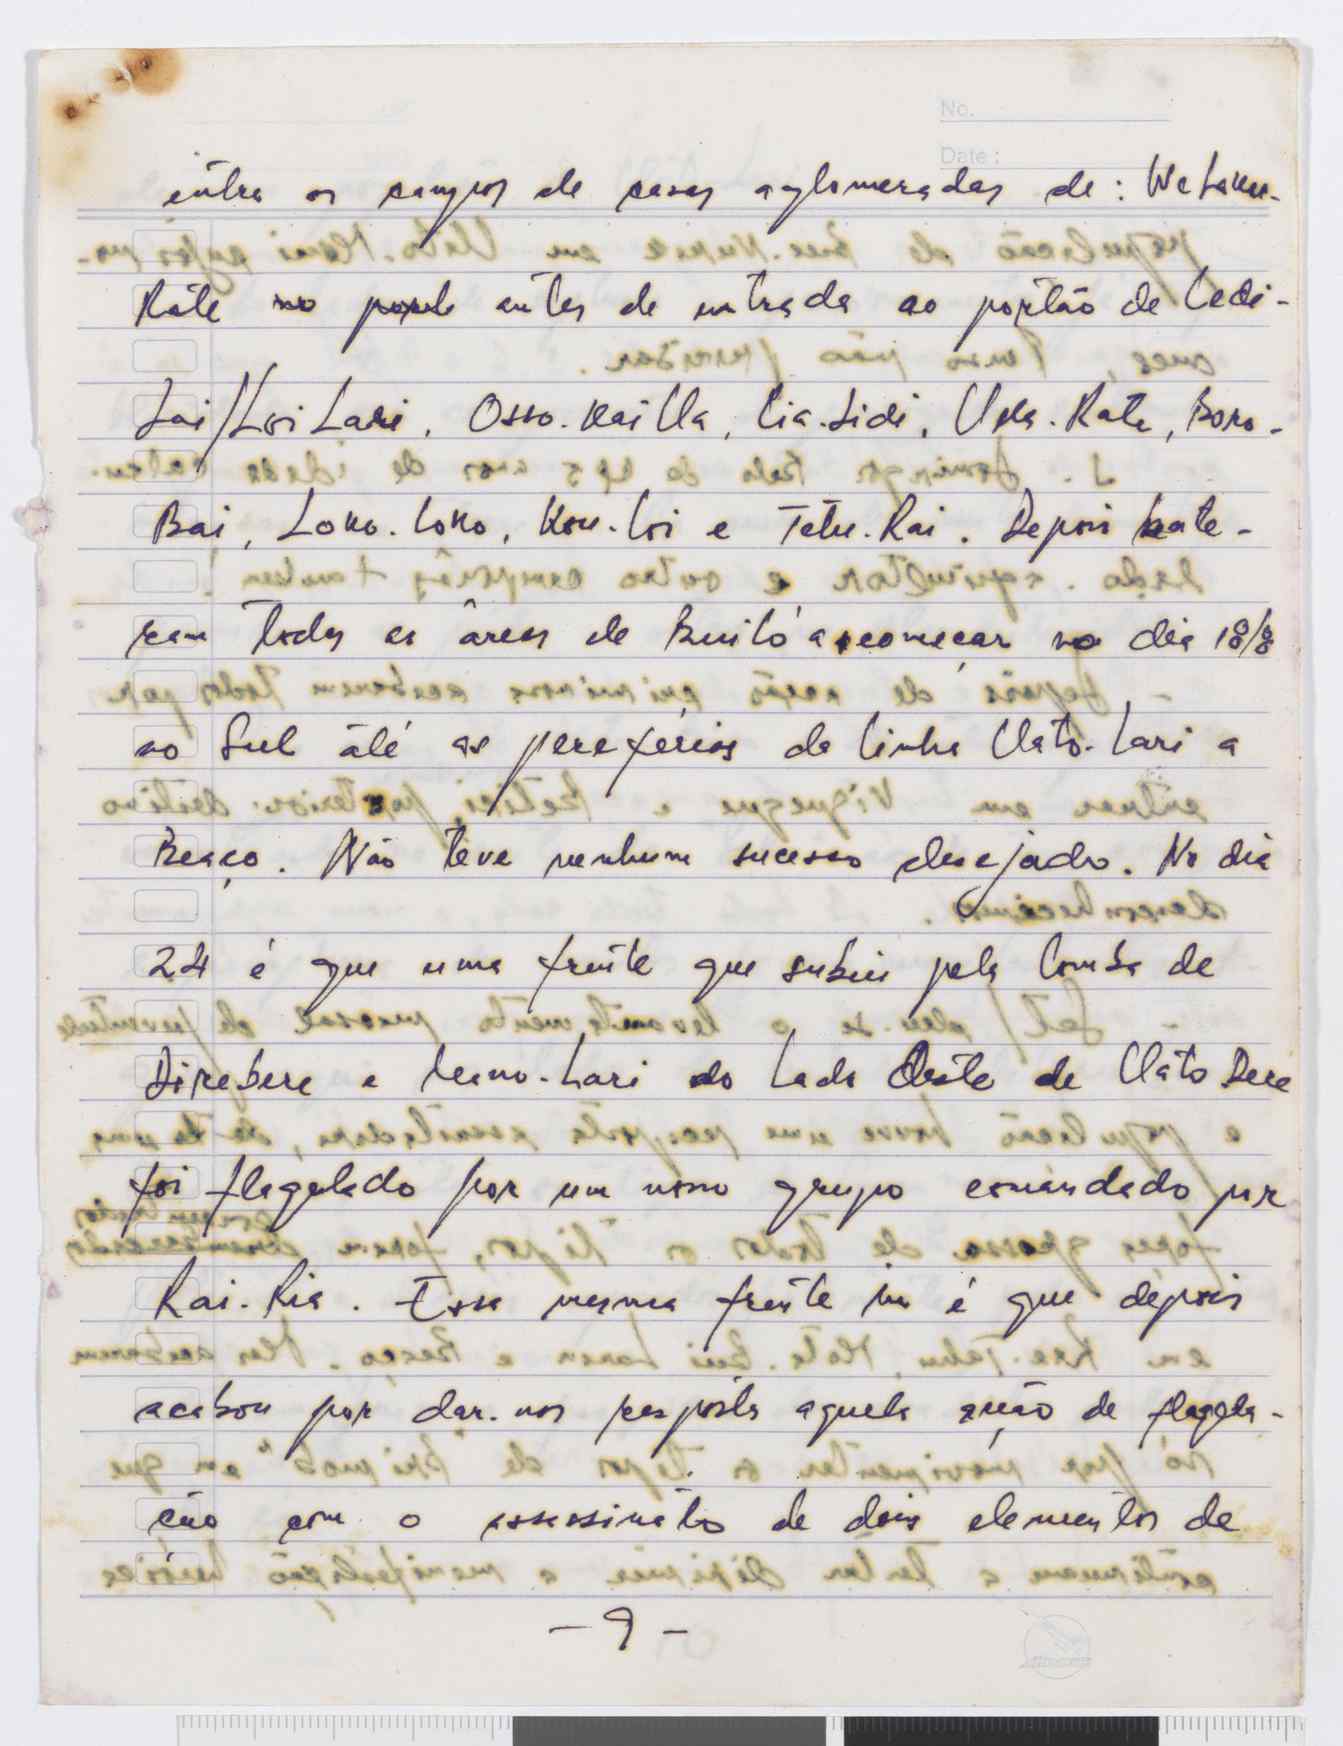 No.
Date :
entra os campos de casas aglomeradas de : We Laku-
Rate no antes de entrada ao portão de Ledi-
Lai/Loi Lari, Osso.kai Ua, Lia.Lidi, Rate, Boro-
Bai, Loko.Loko, Kou.Loi e Tetu.Rai. Depois bate-
ram todas as áreas de Builó a começar no dia 18/8
no Sul até as pereférias da linha Uato-Lari a
Beaço. Não teve nenhum sucesso desejado. No dia
24 é que uma frente que subiu pela lomba de
Direbere e Lari do lado Oeste de Uato Dere
foi flagelado por um nosso grupo comandado por
Rai.Ria. Essa mesma frente in é que depois
acabou por dar-nos resposta aquela acção de flagela-
ção com o assassinato de dois elementos de
- 9 -